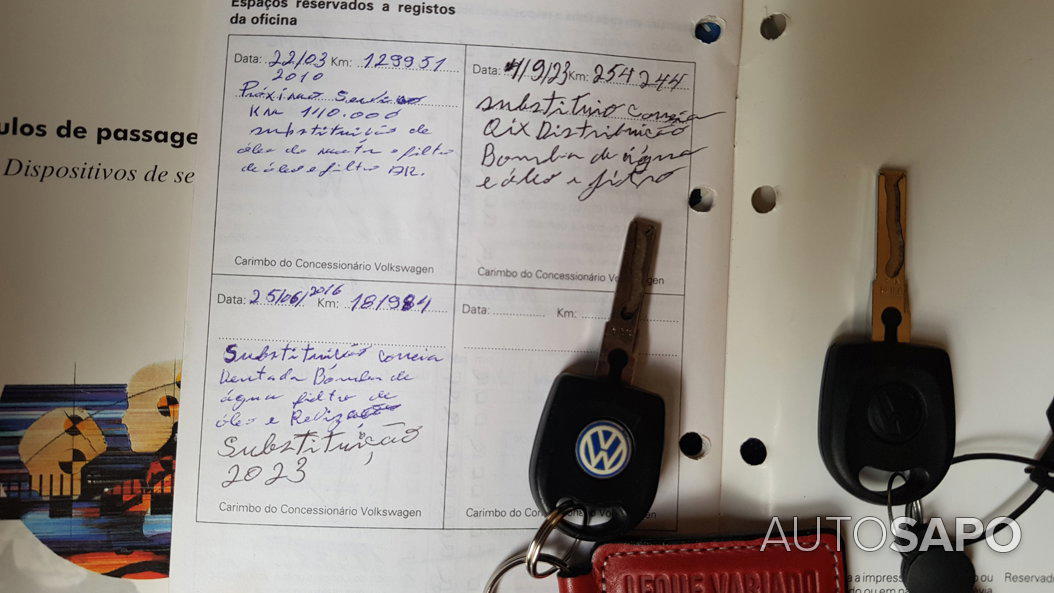 Espaços reservados a registos
da oficina
Data: 22/03 Km: 129951
2010
Próximo Serviço
Km 140.000
substituição de
óleo do motor e filtro
de óleo e filtro AR.
Carimbo do Concessionário Volkswagen
Data: 4/9/23 Km: 254244
substituio correia
Distribuição
Bomba de água
e óleo e filtro
Carimbo do Concessionário Vo gen
Data: 25/06/2016 Km: 181984
Substituição correia
Dentada Bomba de
água filtro de
óleo e
Substituição
2023
Carimbo do Concessionário Volkswagen
Data: Km:
Carimbo do Conces onário Volkswagen
ulos de passage
Dispositivos de se
VW
AUTOSAPO
a a impress o ou
do ou em pa via
Reservad